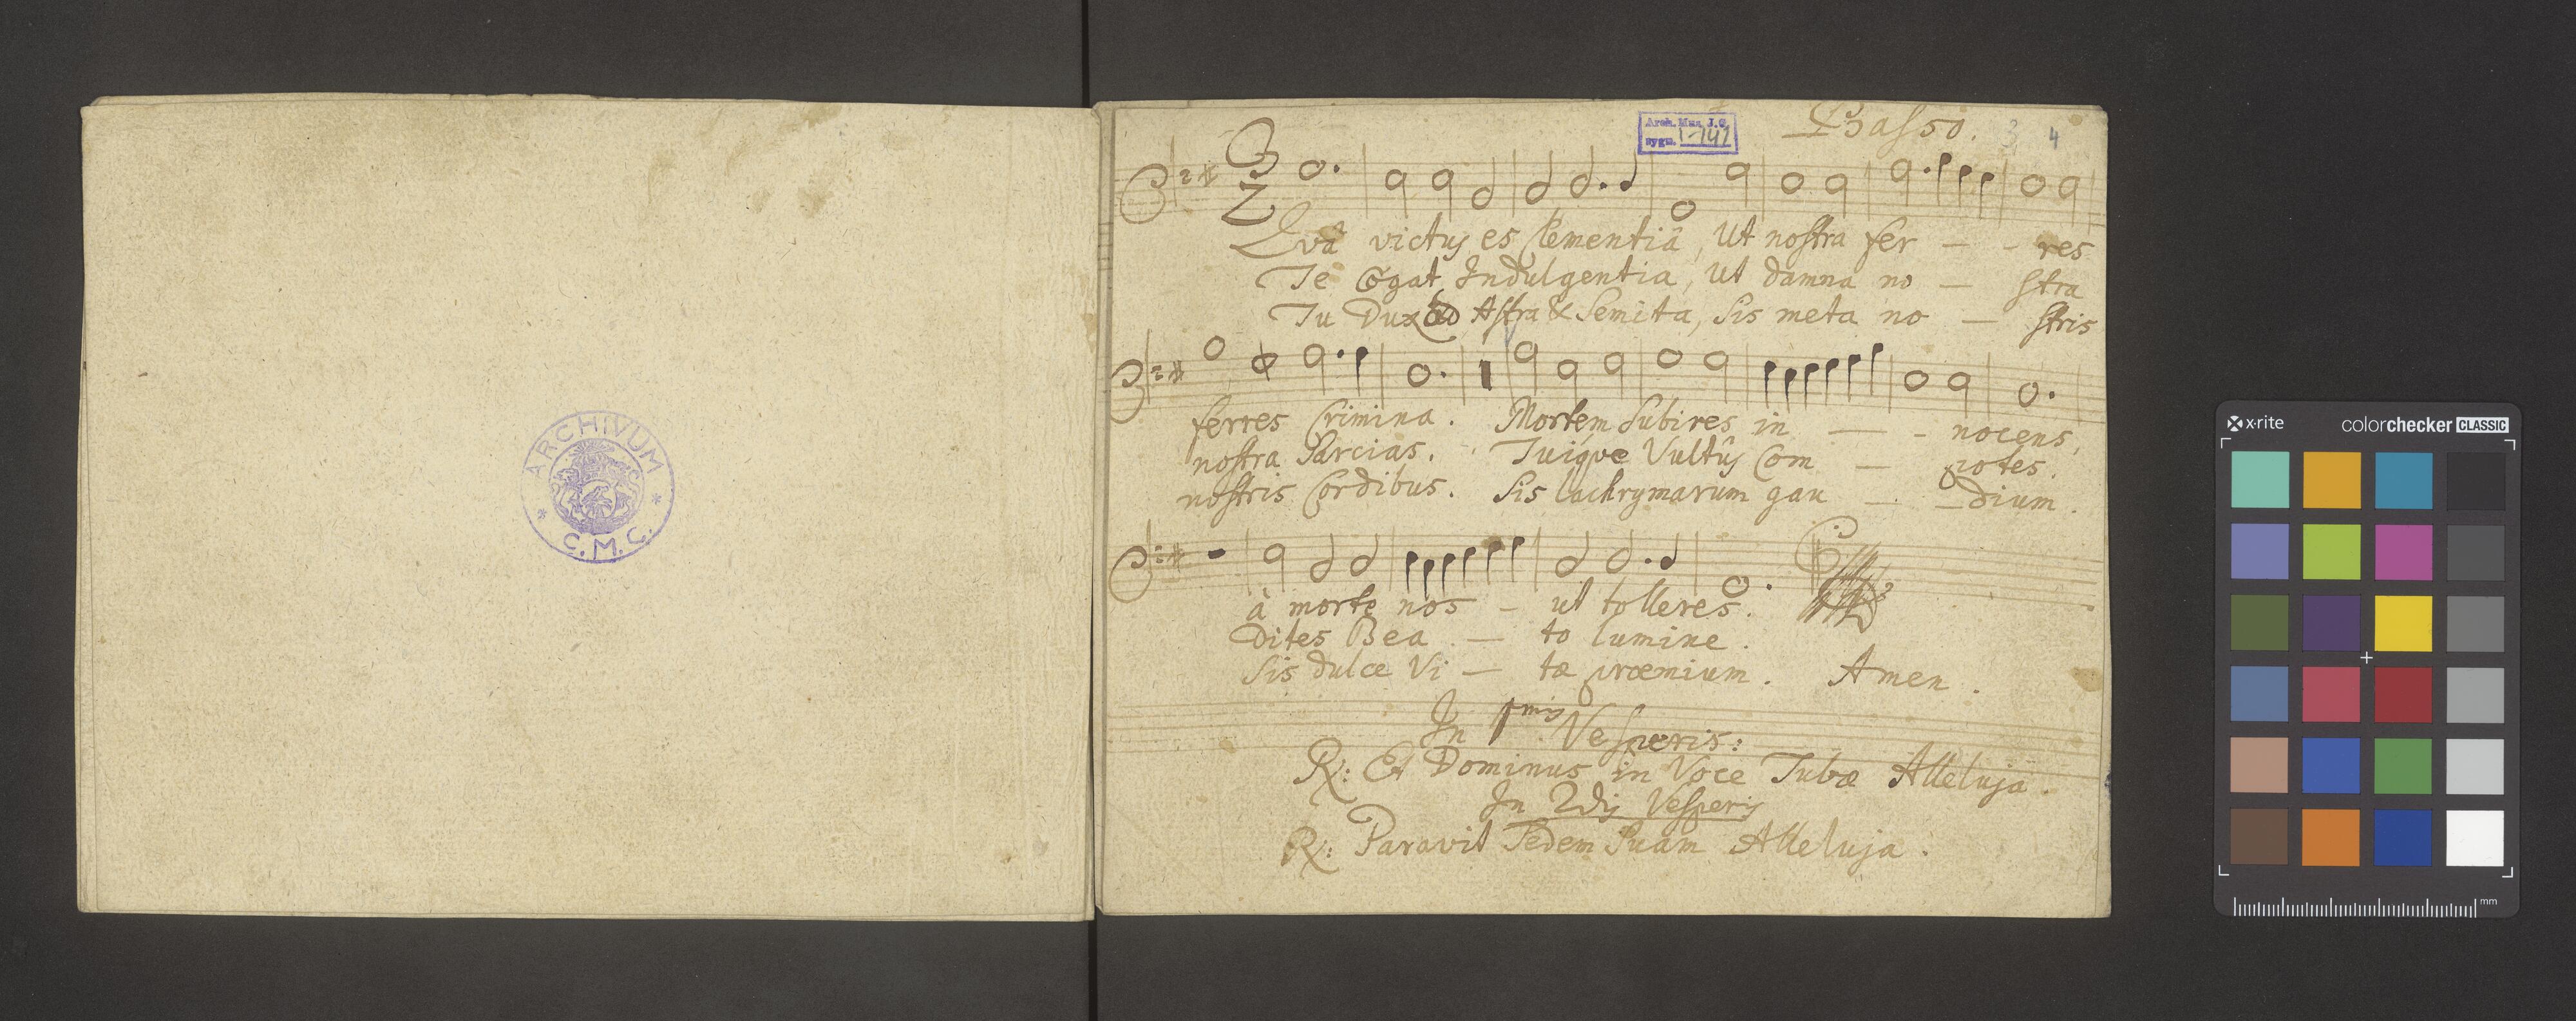 ARCHIVUM
* C. M. C. *
Basso.
3 4
Arch. Muz. J. G.
sygn. I-141
3
2
Qvâ victus es Clementiâ, Ut nostra fer - - res
Te Cogat Indulgentia, Ut damna no - stra
Tu Dux ad Astra & Semita, Sis meta no - stris
ferres Crimina. Mortem Subires in - - nocens,
nostra Sarcias. Tuiqve Vultûs Com - potes.
nostris Cordibus. Sis lachrymarum gau - - dium.
à morte nos - ut tolleres.
Dites Bea - to lumine.
Sis dulce Vi - tæ præmium. Amen.
In 1mis Vesperis:
R: Et Dominus in Voce Tubæ Alleluja.
In 2dis Vesperis
R: Paravit Sedem Suam Alleluja.
x·rite colorchecker CLASSIC
mm